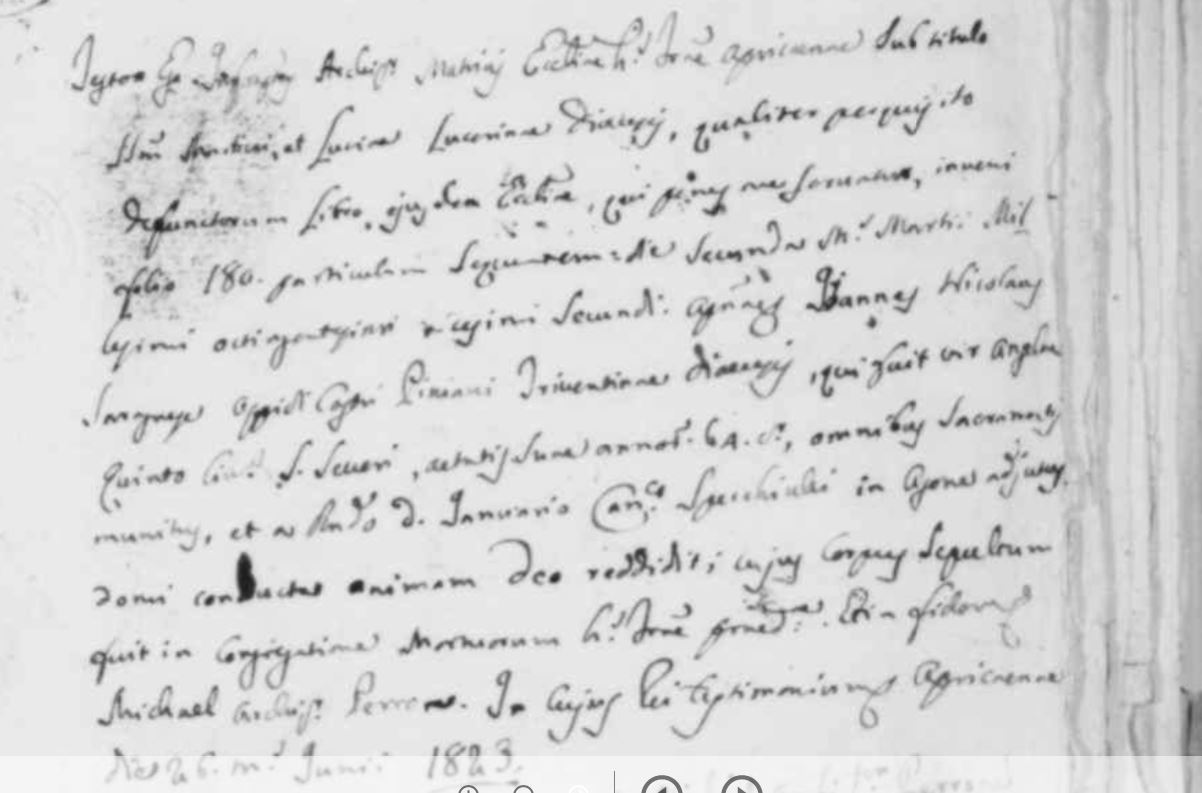 Testor Ego Infrascriptus Archip.r Matricis Eccl̃iae h.s Terræ Apricenæ sub titulo
SS.m Martini, et Luciæ Lucerinæ Diœcesis, qualiter perquisito
Defunctorum Libro, ejusdem Eccl̃iæ, qui penes me servatur, inveni
folio 180. particulam sequentem: die secunda M.s Martii Mil
lesimi octingentesimi vigesimi secundi: Joannes Nicolaus
oppidi Castri Piniani Triventinæ Diœcesis, qui fuit vir Angelæ
Quinto Civ.s S. Severi, ætatis suæ annor. 64. c.a, omnibus Sacramentis
munitus, et a Rndo D. Januario Can.co in agone adjutus,
domi conductus animam Deo reddidit; cujus corpus sepultum
fuit in Congregatione Mortuorum h.s Terræ præd.æ Et in fidem
Michael Archip.r Perrone. In cujus rei testimonium Apricenæ
die 26. m.s Junii 1823.